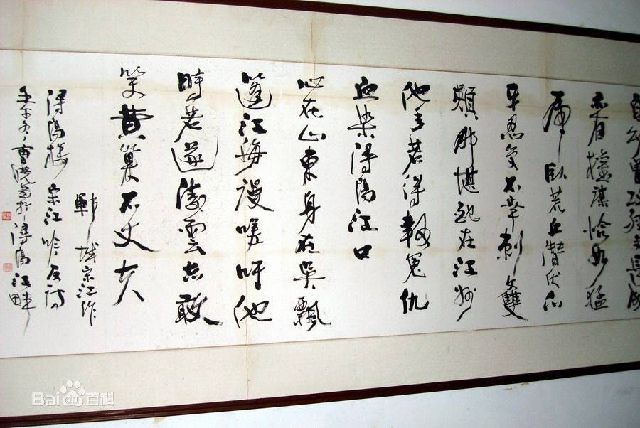 自幼曾攻经史長成
亦有權謀恰如猛
虎卧荒丘潜伏爪
牙忍受不幸刺雙
頰那堪配在江州
他年若得報冤仇
血染浔陽江口
心在山東身在吴飄
蓬江海谩嗟吁他
時若遂凌雲志敢
笑黄巢不丈夫
郓城宋江作
浔陽楼宋江吟反诗
浔陽江畔
Bai百科